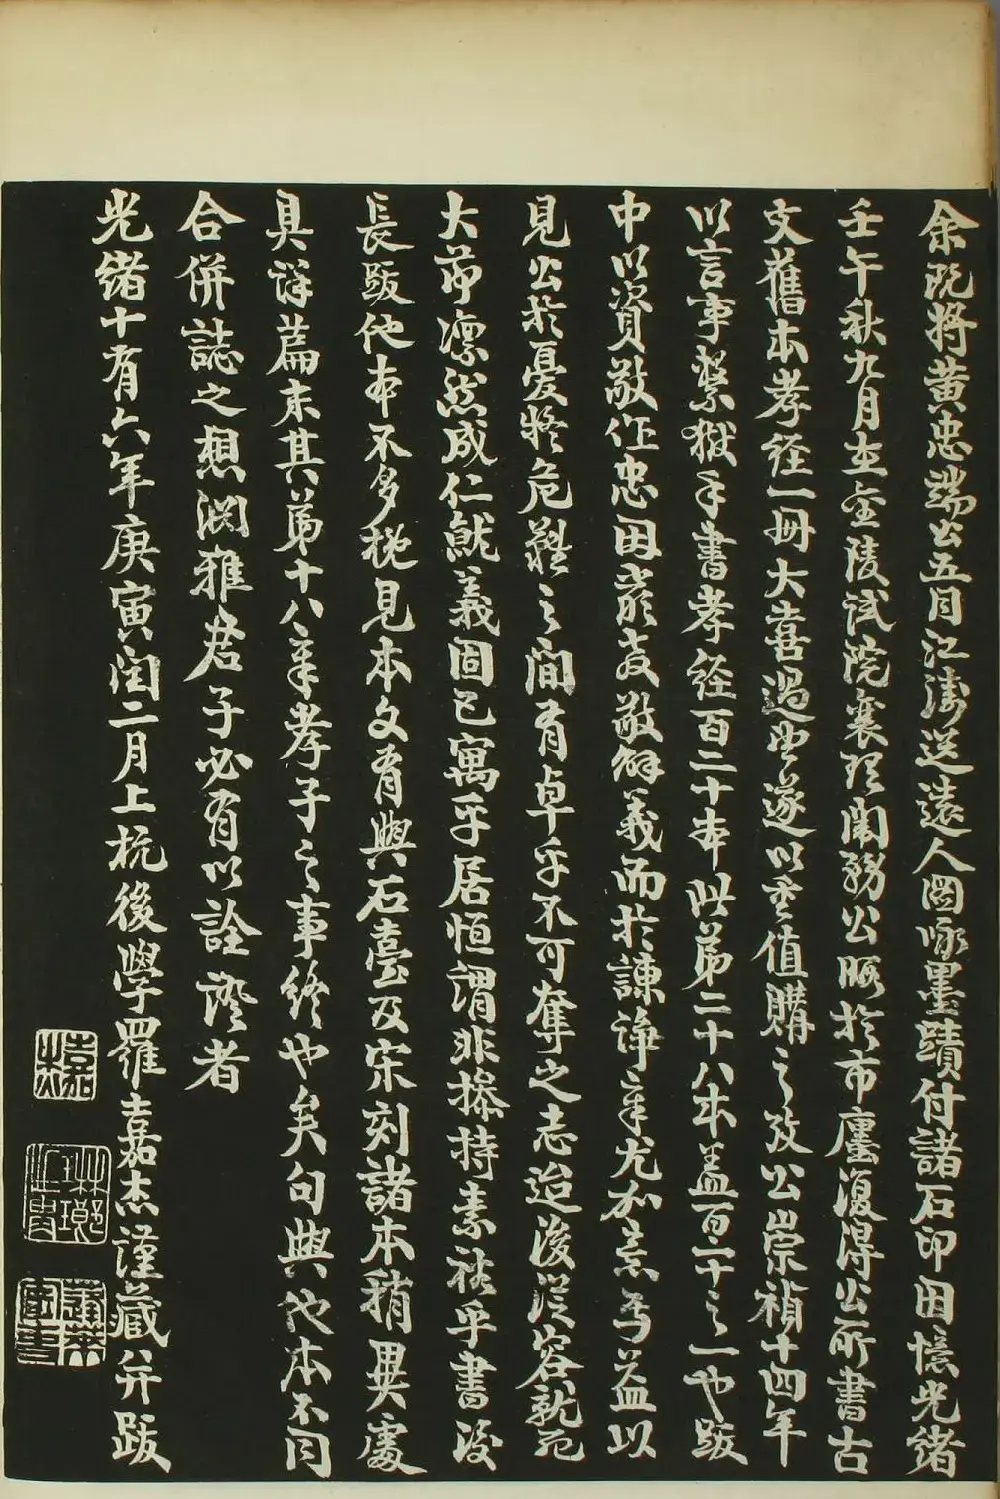 余既將黃忠端公五月江濤送遠人圖咏墨蹟付諸石印因憶光緒
壬午秋九月在金陵試院襄理闈務公暇於市廛復得公所書古
文舊本孝經一冊大喜過望遂以重值購之攷公崇禎十四年
以言事繫獄手書孝經百二十本此第二十八本蓋百二十之一也跋
中以資敬作忠因嚴教敬解義而於諫諍章尤加意焉益以
見公於憂將危難之間有卓乎不可奪之志迨後從容就死
大節凛然成仁就義固已寓乎居恒謂非操持素裕乎書後
長跋他本不多槩見本文有與石臺及宋刻諸本稍異處
具詳篇末其第十八章孝子之事終也矣句與他本不同
合併誌之想淵雅君子必有以詮證者
光緒十有六年庚寅閏二月上杭後學羅嘉杰謹藏并跋
嘉杰